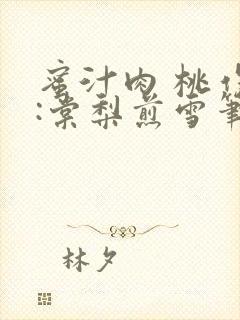 蜜汁肉桃作
:棠梨煎雪筆
林夕